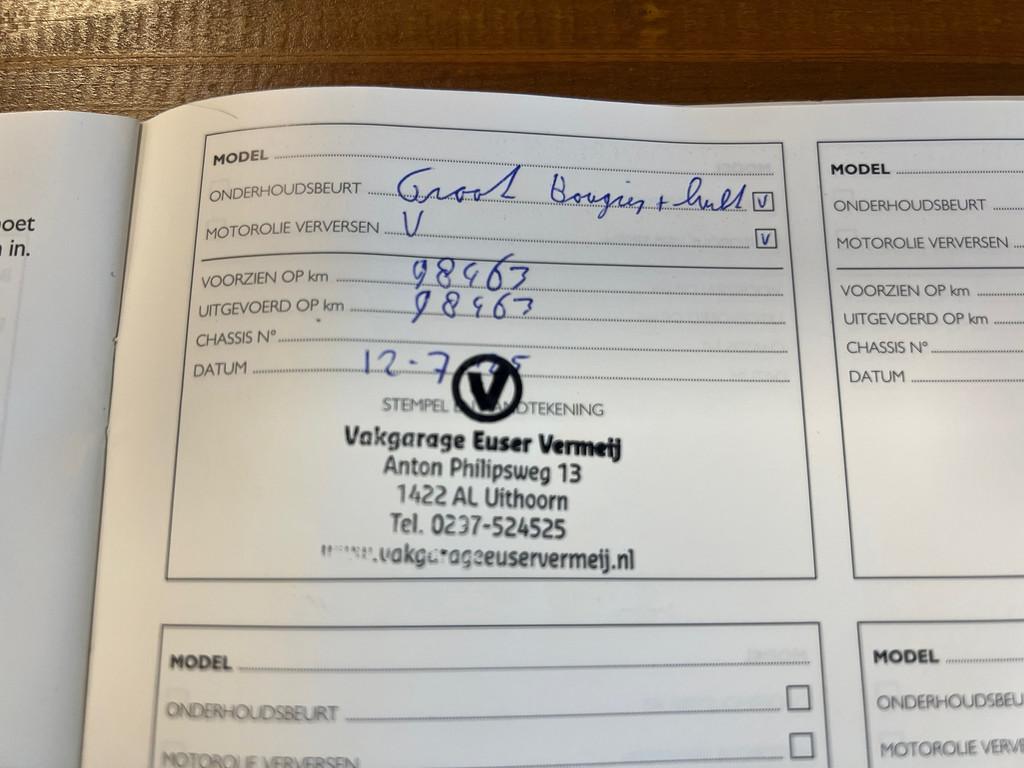 oet
n in.
MODEL
ONDERHOUDSBEURT Groot Bougies +
MOTOROLIE VERVERSEN V
VOORZIEN OP km 98463
UITGEVOERD OP km 98463
CHASSIS N°
DATUM 12-7
STEMPEL EN HANDTEKENING
V
Vakgarage Euser Vermeij
Anton Philipsweg 13
1422 AL Uithoorn
Tel. 0297-524525
www.vakgarageeuservermeij.nl
MODEL
ONDERHOUDSBEURT
MOTOROLIE VERVERSEN
VOORZIEN OP km
UITGEVOERD OP km
CHASSIS N°
DATUM
MODEL
ONDERHOUDSBEURT
MOTOROLIE VERVERSEN
MODEL
ONDERHOUDSBEU
MOTOROLIE VERVE